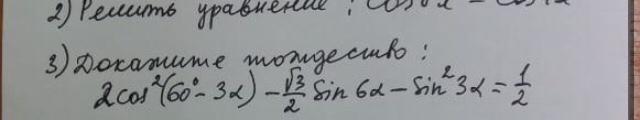 2) Решить уравнение :
3) Докажите тождество :
2cos²(60° - 3α) - √3/2 sin 6α - sin² 3α = 1/2